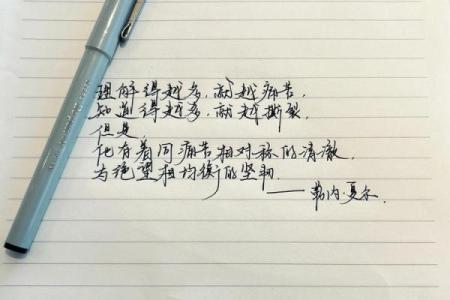 理解得越多,就越痛苦,
知道得越多,就越撕裂,
但是,
他有着同痛苦相对称的清澈,
与绝望相均衡的坚韧
——勒内·夏尔.